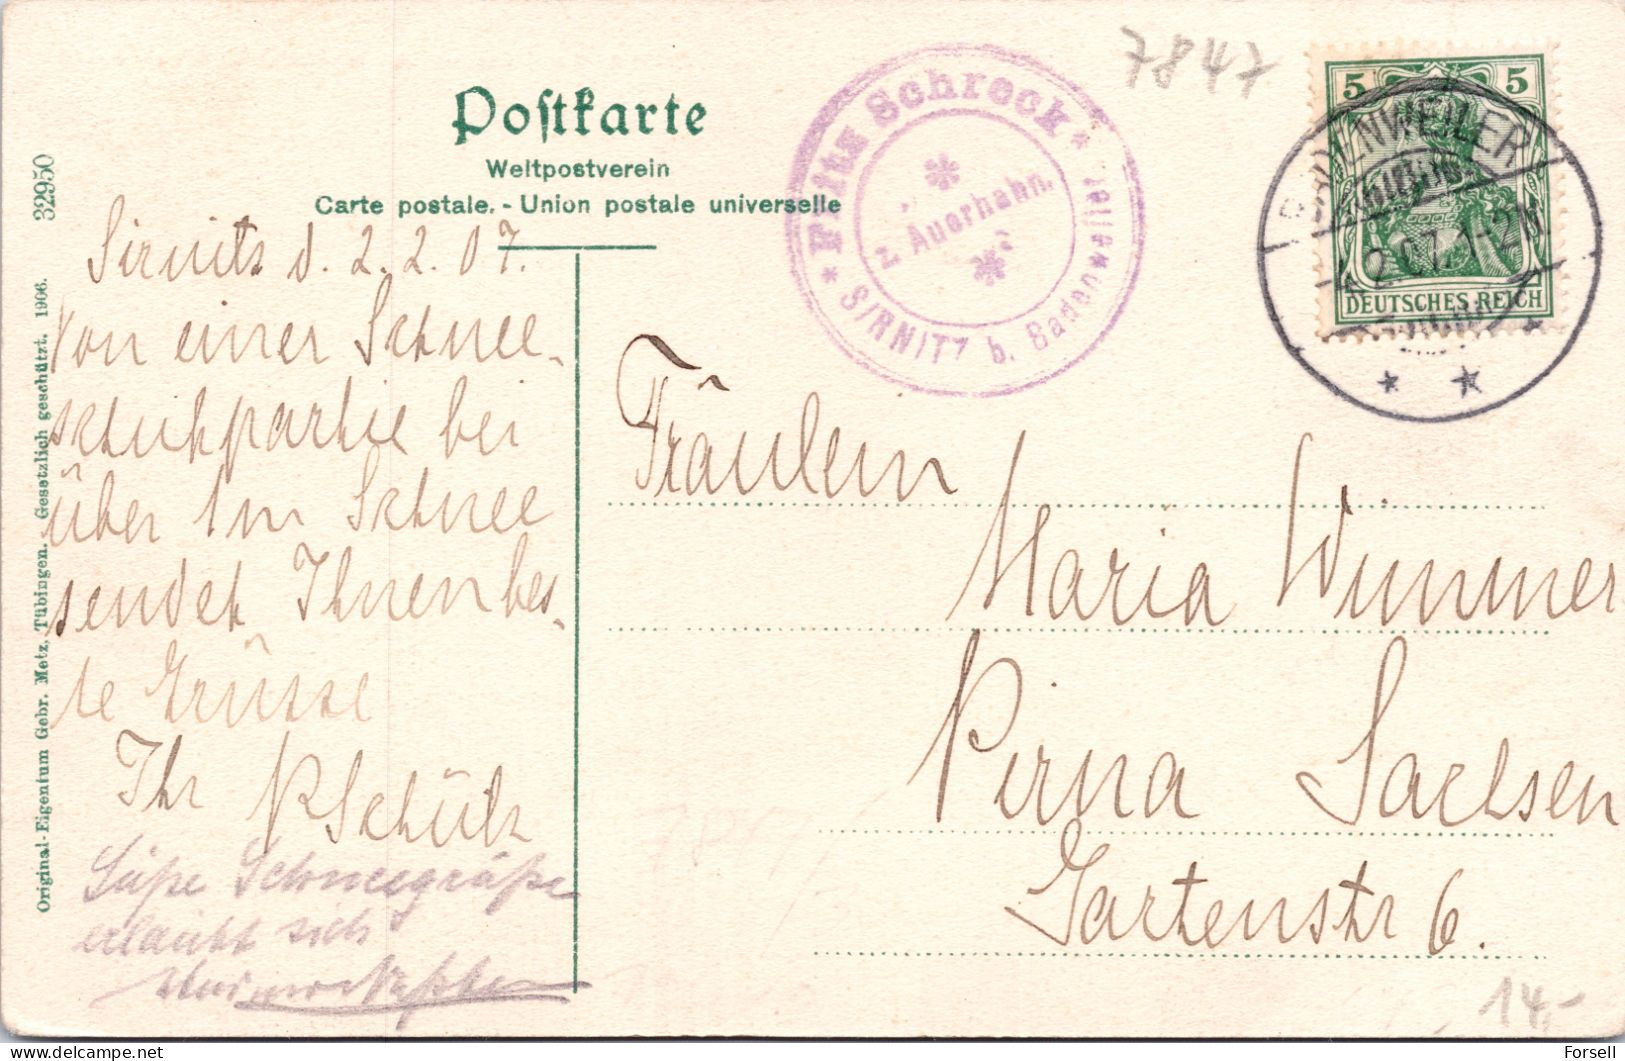 7847
Postkarte
Weltpostverein
Carte postale. - Union postale universelle
32950
Original-Eigentum Gebr. Metz, Tübingen. Gesetzlich geschützt. 1906.
* Fritz Schrock *
z. Auerhahn.
SIRNITZ b. Badenweiler.
5 5
DEUTSCHES REICH
BADENWEILER
4.2.07. 1-2N
Sirnitz d. 2.2.07.
Von einer Schnee-
schuhpartie bei
über 1m Schnee
sendet Ihnen bes-
te Grüsse
Ihr PSchütz
Süße Schneegrüße
erlaubt sich
Fräulein
Maria Wimmer
Pirna Sachsen
Gartenstr 6.
14,-
Forsell